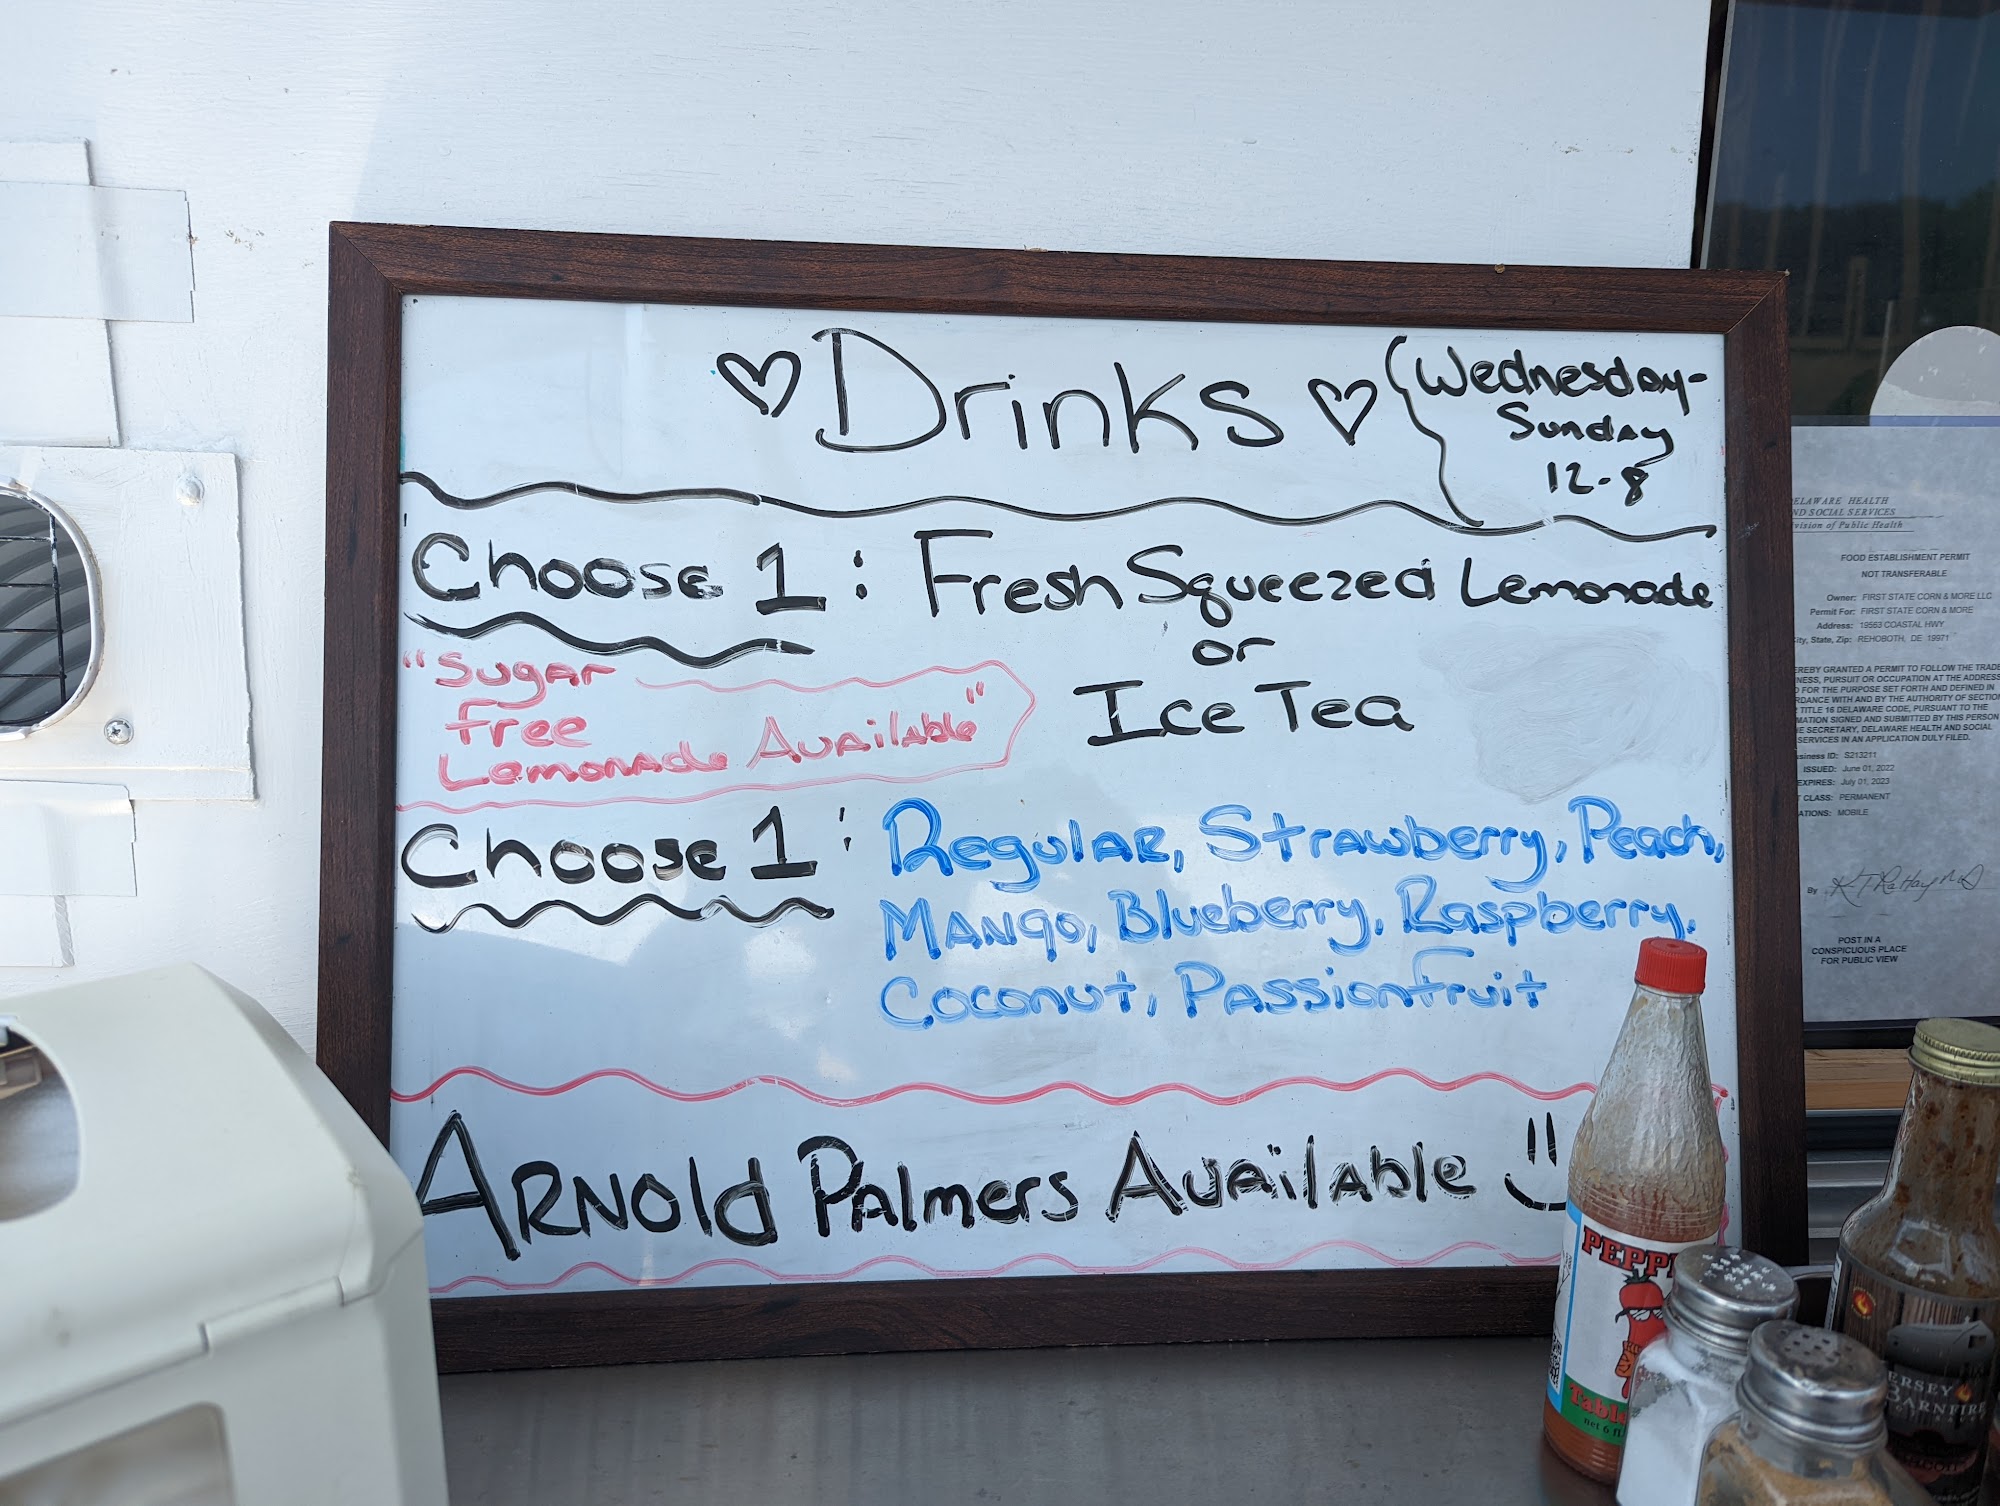 Drinks
Wednesday-
Sunday
12-8
Choose 1: Fresh Squeezed Lemonade
or
Ice Tea
"Sugar
free
Lemonade Available"
Choose 1: Regular, Strawberry, Peach,
Mango, Blueberry, Raspberry,
Coconut, Passionfruit
Arnold Palmers Available
DELAWARE HEALTH
AND SOCIAL SERVICES
Division of Public Health
FOOD ESTABLISHMENT PERMIT
NOT TRANSFERABLE
Owner: FIRST STATE CORN & MORE LLC
Permit For: FIRST STATE CORN & MORE
Address: 19563 COASTAL HWY
City, State, Zip: REHOBOTH, DE 19971
EREBY GRANTED A PERMIT TO FOLLOW THE TRADE
NESS, PURSUIT OR OCCUPATION AT THE ADDRESS
FOR THE PURPOSE SET FORTH AND DEFINED IN
RDANCE WITH AND BY THE AUTHORITY OF SECTION
TITLE 16 DELAWARE CODE, PURSUANT TO THE
MATION SIGNED AND SUBMITTED BY THIS PERSON
E SECRETARY, DELAWARE HEALTH AND SOCIAL
SERVICES IN AN APPLICATION DULY FILED.
siness ID: S213211
ISSUED: June 01, 2022
EXPIRES: July 01, 2023
T CLASS: PERMANENT
ATIONS: MOBILE
By
POST IN A
CONSPICUOUS PLACE
FOR PUBLIC VIEW
PEPP
Table
net 6 fl
ERSEY
BARNFIRE